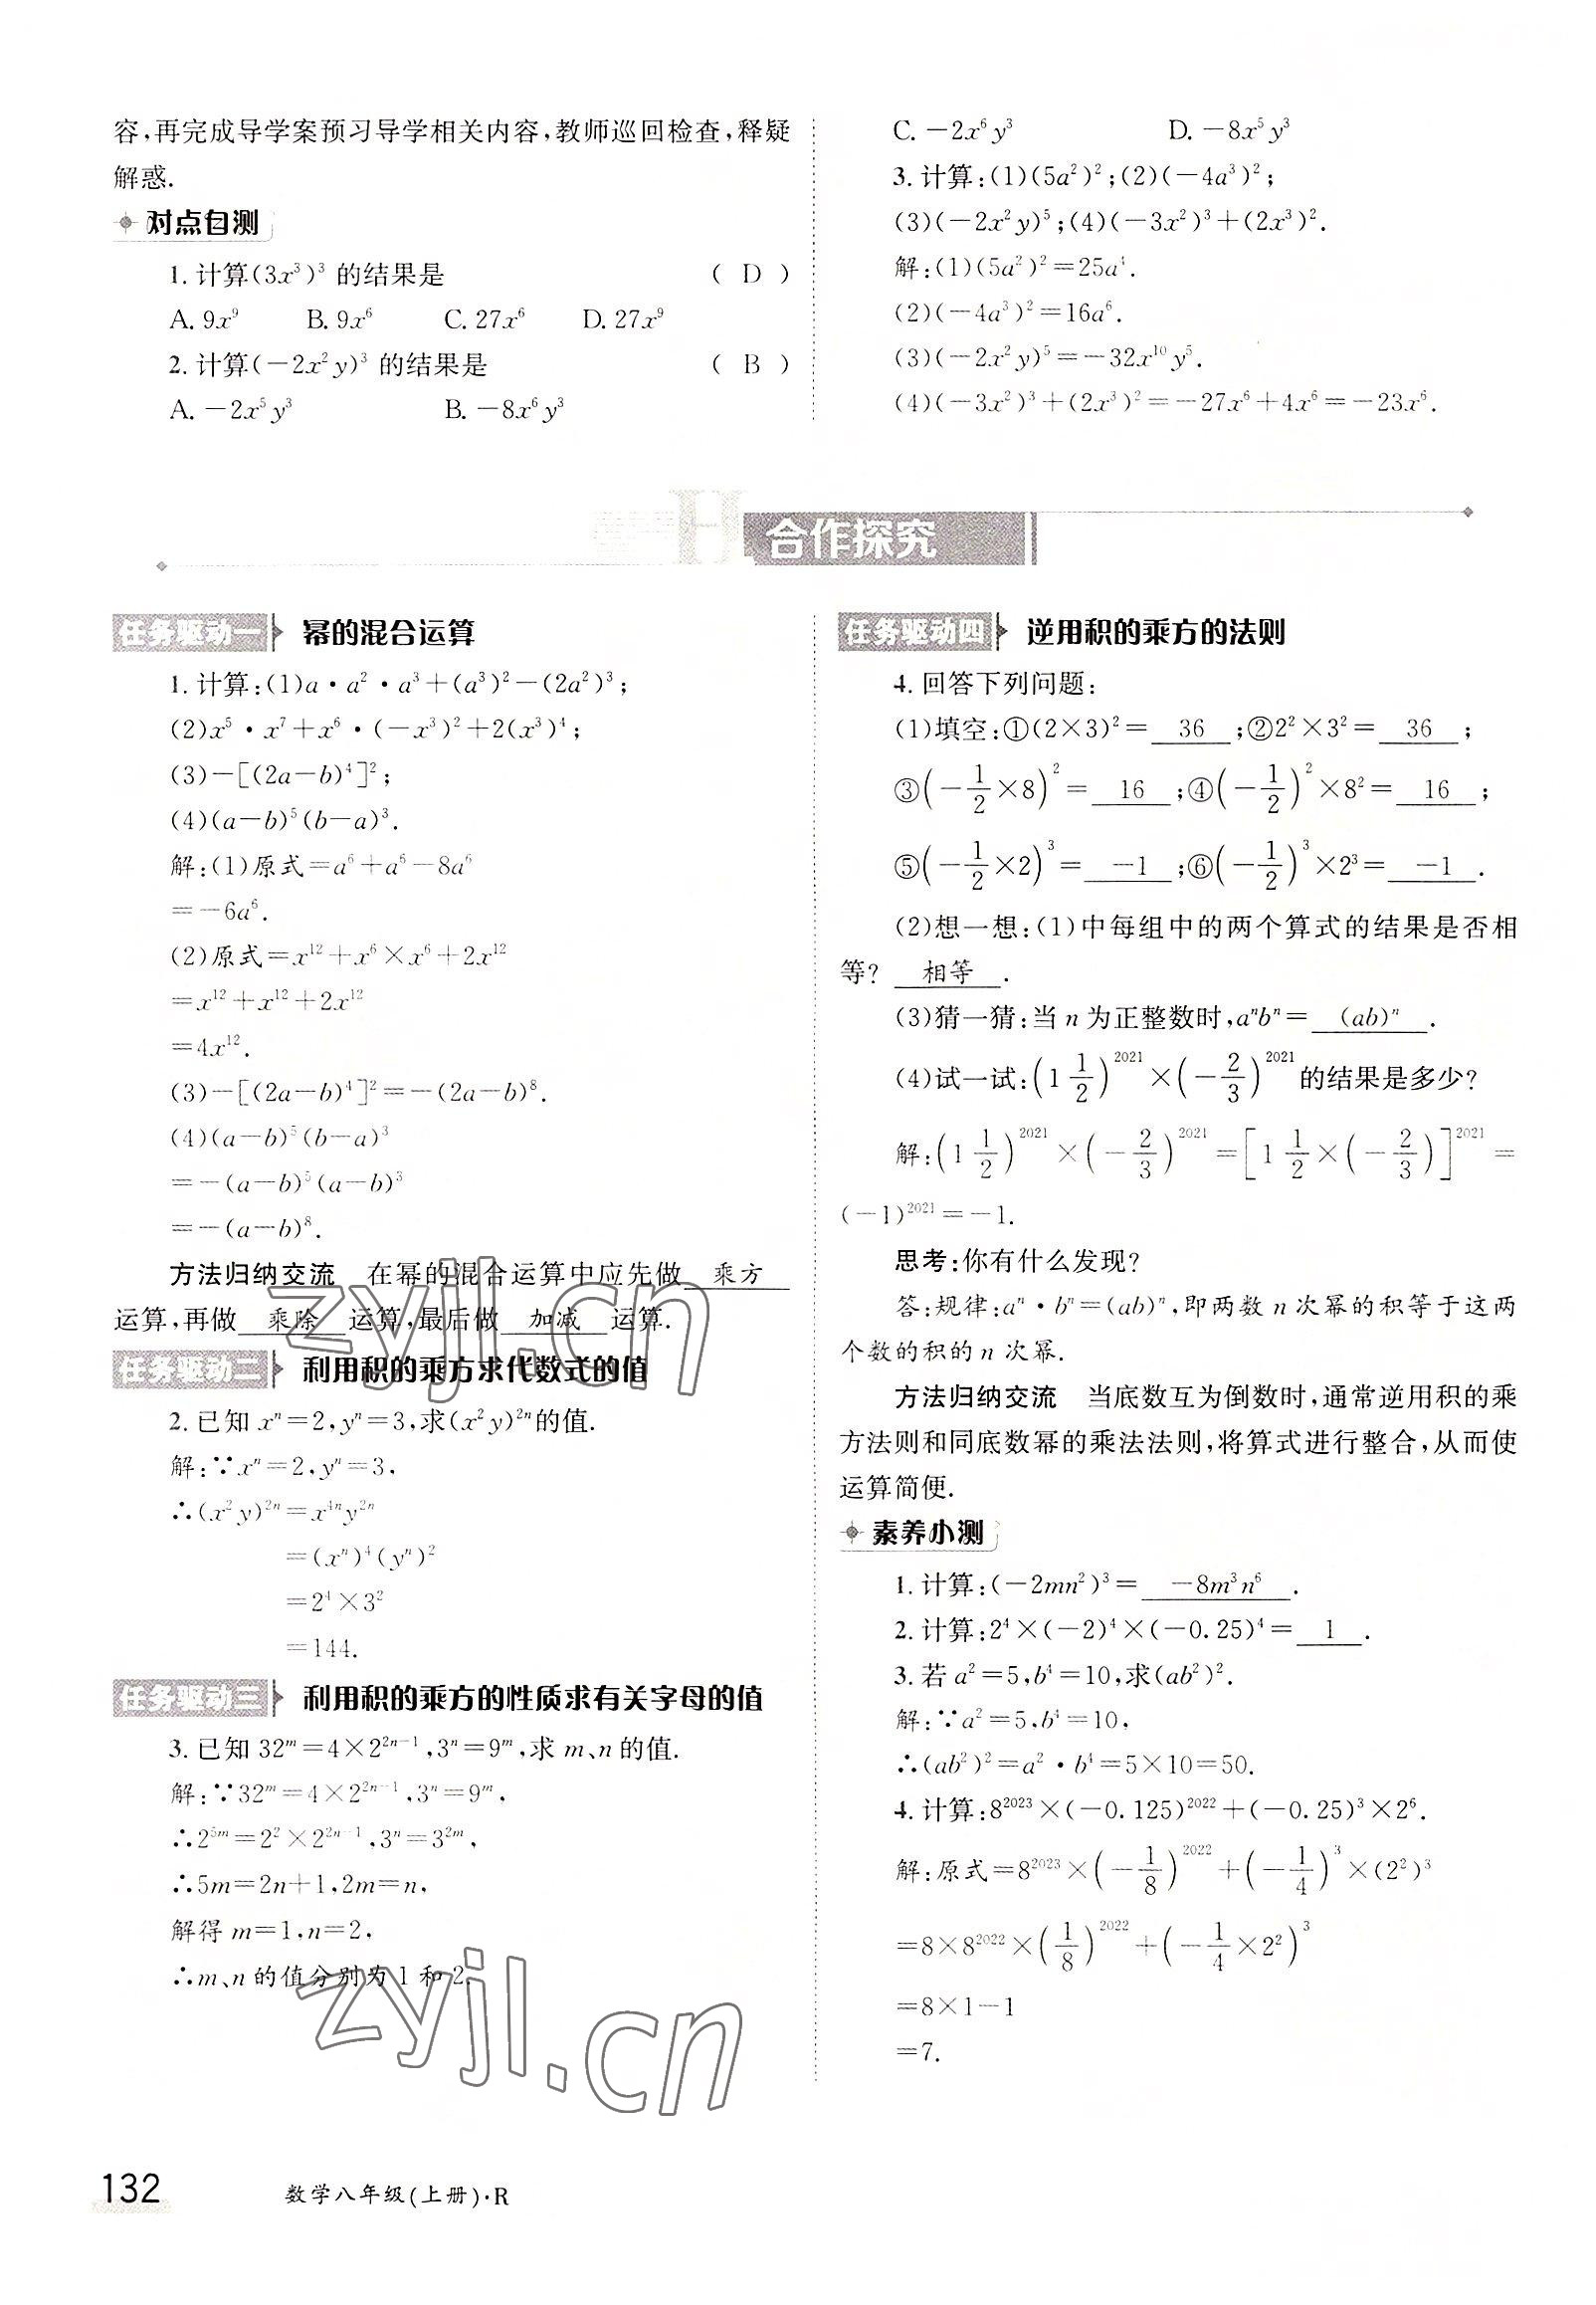 容,再完成导学案预习导学相关内容,教师巡回检查,释疑
解惑.
对点自测
1. 计算(3x³)³ 的结果是 ( D )
A. 9x⁹ B. 9x⁶ C. 27x⁶ D. 27x⁹
2. 计算(-2x²y)³ 的结果是 ( B )
A. -2x⁵y³ B. -8x⁶y³
C. -2x⁶y³ D. -8x⁵y³
3. 计算:(1)(5a²)²;(2)(-4a³)²;
(3)(-2x²y)⁵;(4)(-3x²)³+(2x³)².
解:(1)(5a²)²=25a⁴.
(2)(-4a³)²=16a⁶.
(3)(-2x²y)⁵=-32x¹⁰y⁵.
(4)(-3x²)³+(2x³)²=-27x⁶+4x⁶=-23x⁶.
H 合作探究
任务驱动一 幂的混合运算
1. 计算:(1)a·a²·a³+(a³)²-(2a²)³;
(2)x⁵·x⁷+x⁶·(-x³)²+2(x³)⁴;
(3)-[(2a-b)⁴]²;
(4)(a-b)⁵(b-a)³.
解:(1)原式=a⁶+a⁶-8a⁶
=-6a⁶.
(2)原式=x¹²+x⁶×x⁶+2x¹²
=x¹²+x¹²+2x¹²
=4x¹².
(3)-[(2a-b)⁴]²=-(2a-b)⁸.
(4)(a-b)⁵(b-a)³
=-(a-b)⁵(a-b)³
=-(a-b)⁸.
方法归纳交流 在幂的混合运算中应先做 乘方
运算,再做 乘除 运算,最后做 加减 运算.
任务驱动二 利用积的乘方求代数式的值
2. 已知 xⁿ=2,yⁿ=3,求(x²y)²ⁿ的值.
解:∵xⁿ=2,yⁿ=3,
∴(x²y)²ⁿ=x⁴ⁿy²ⁿ
=(xⁿ)⁴(yⁿ)²
=2⁴×3²
=144.
任务驱动三 利用积的乘方的性质求有关字母的值
3. 已知 32ᵐ=4×2²ⁿ⁻¹,3ⁿ=9ᵐ,求 m、n 的值.
解:∵32ᵐ=4×2²ⁿ⁻¹,3ⁿ=9ᵐ,
∴2⁵ᵐ=2²×2²ⁿ⁻¹,3ⁿ=3²ᵐ,
∴5m=2n+1,2m=n,
解得 m=1,n=2,
∴m、n 的值分别为 1 和 2.
任务驱动四 逆用积的乘方的法则
4. 回答下列问题:
(1)填空:①(2×3)²= 36 ;②2²×3²= 36 ;
③(-1/2×8)²= 16 ;④(-1/2)²×8²= 16 ;
⑤(-1/2×2)³= -1 ;⑥(-1/2)³×2³= -1 .
(2)想一想:(1)中每组中的两个算式的结果是否相
等? 相等 .
(3)猜一猜:当 n 为正整数时,aⁿbⁿ= (ab)ⁿ .
(4)试一试:(1 1/2)²⁰²¹×(-2/3)²⁰²¹的结果是多少?
解:(1 1/2)²⁰²¹×(-2/3)²⁰²¹=[1 1/2×(-2/3)]²⁰²¹=
(-1)²⁰²¹=-1.
思考:你有什么发现?
答:规律:aⁿ·bⁿ=(ab)ⁿ,即两数 n 次幂的积等于这两
个数的积的 n 次幂.
方法归纳交流 当底数互为倒数时,通常逆用积的乘
方法则和同底数幂的乘法法则,将算式进行整合,从而使
运算简便.
素养小测
1. 计算:(-2mn²)³= -8m³n⁶ .
2. 计算:2⁴×(-2)⁴×(-0.25)⁴= 1 .
3. 若 a²=5,b⁴=10,求(ab²)².
解:∵a²=5,b⁴=10,
∴(ab²)²=a²·b⁴=5×10=50.
4. 计算:8²⁰²³×(-0.125)²⁰²²+(-0.25)³×2⁶.
解:原式=8²⁰²³×(-1/8)²⁰²²+(-1/4)³×(2²)³
=8×8²⁰²²×(1/8)²⁰²²+(-1/4×2²)³
=8×1-1
=7.
132 数学八年级(上册)·R
zyjl.cn
zyjl.cn